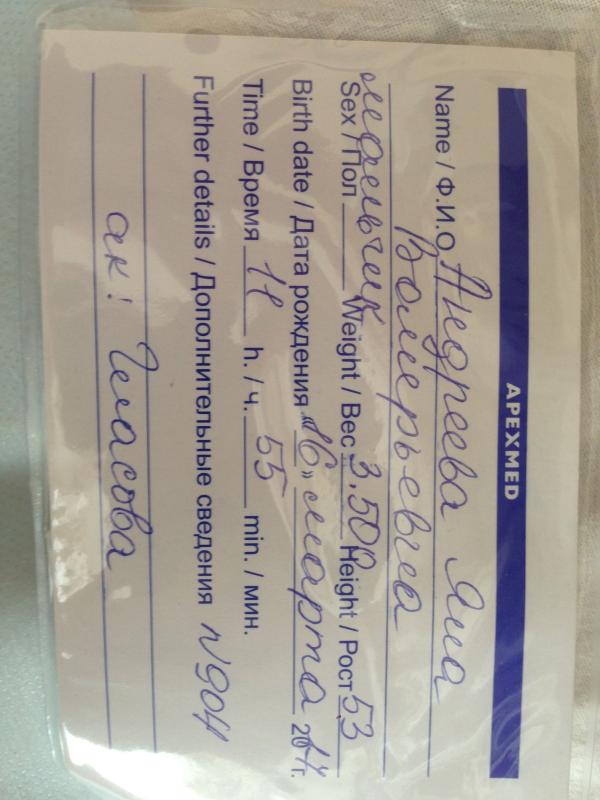 APEXMED
Name / Ф.И.О Андреева Яна
Валерьевна
мальчик
Sex / Пол Weight / Вес 3.500 Height / Рост 53
Birth date / Дата рождения «16» марта 2014г.
Time / Время 11 h. / ч. 55 min. / мин.
Further details / Дополнительные сведения N904
ак! Власова